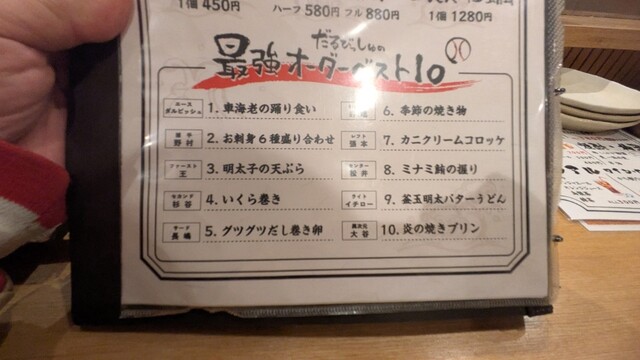 1個 450円
ハーフ 580円 フル 880円
1個 1280円
だるびっしゅの
最強オーダーベスト10
エース ダルビッシュ 1. 車海老の踊り食い
捕手 野村 2. お刺身6種盛り合わせ
ファースト 王 3. 明太子の天ぷら
セカンド 杉谷 4. いくら巻き
サード 長嶋 5. グツグツだし巻き卵
6. 季節の焼き物
レフト 張本 7. カニクリームコロッケ
センター 松井 8. ミナミ鮪の握り
ライト イチロー 9. 釜玉明太バターうどん
異次元 大谷 10. 炎の焼きプリン